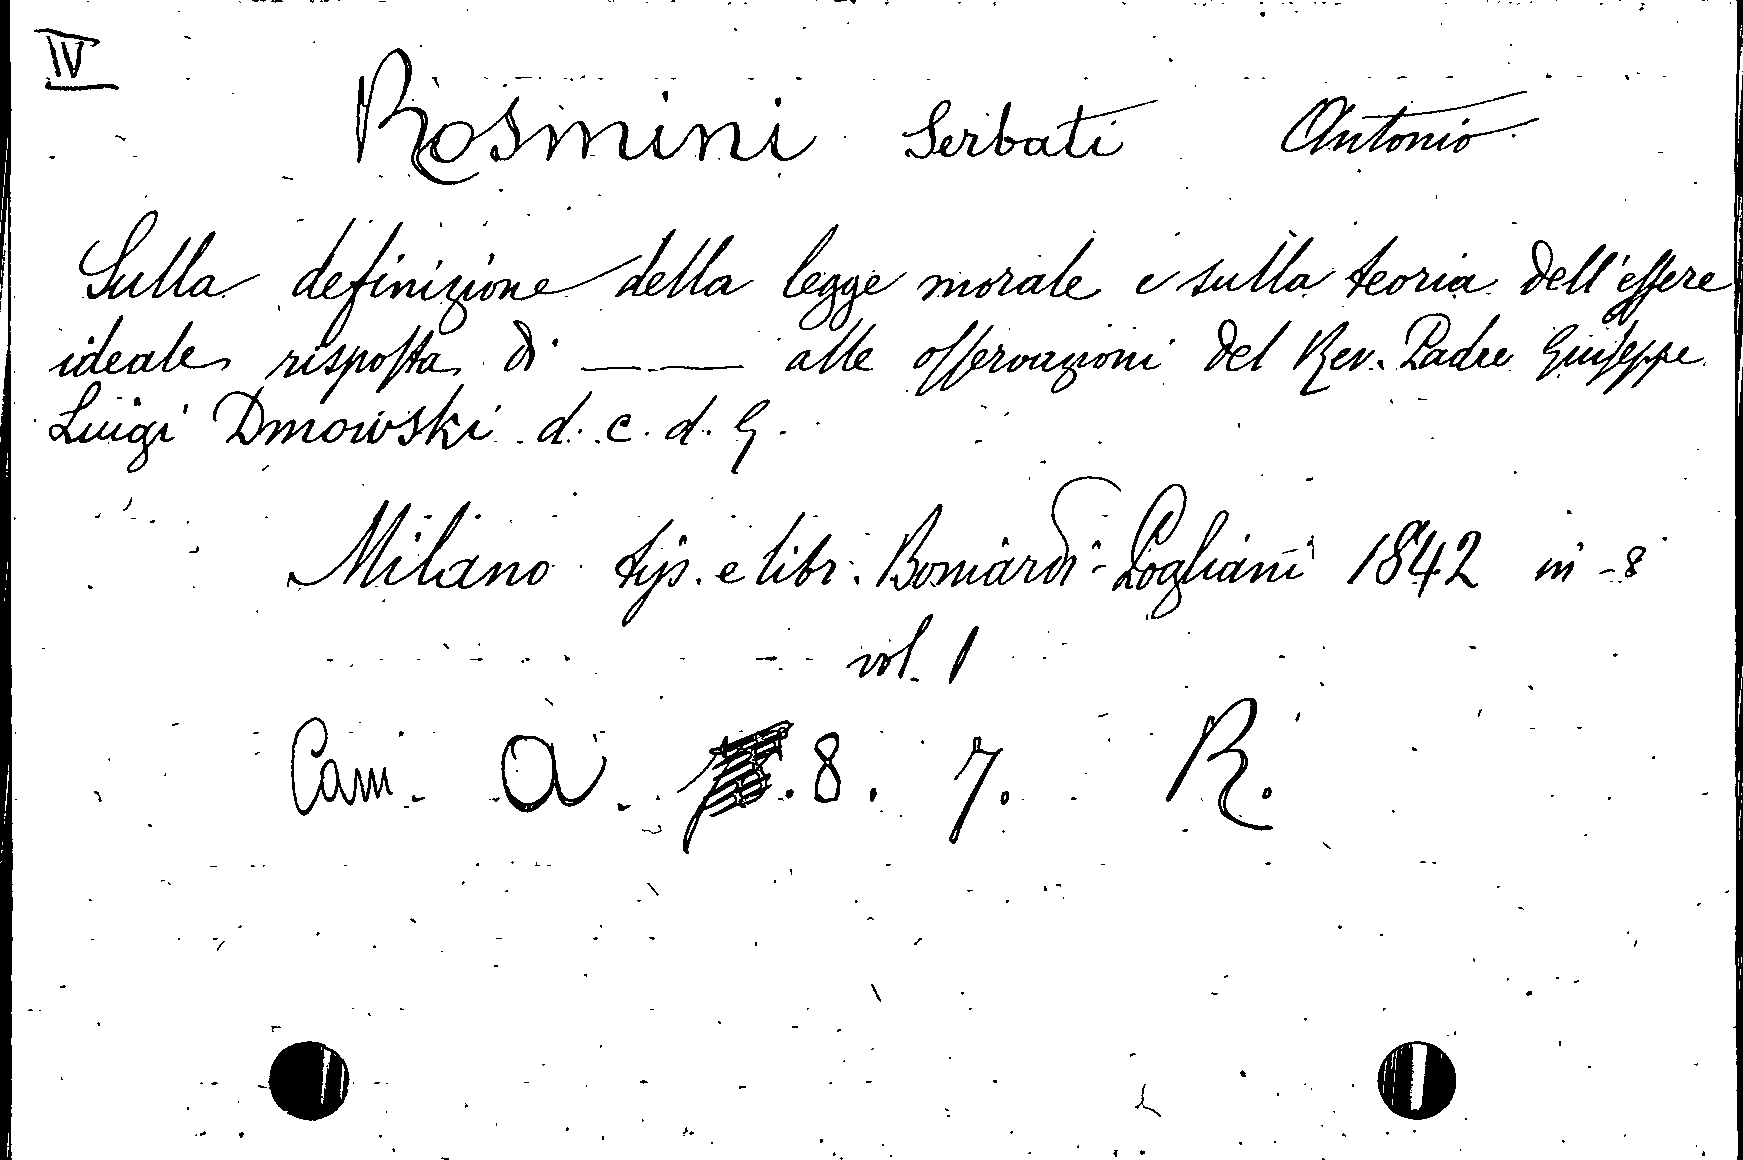 IV
Rosmini Serbati Antonio
Sulla definizione della legge morale e sulla teoria dell'essere
ideale risposta di —— alle osservazioni del Rev. Padre Giuseppe
Luigi Dmowski d. c. d. G.
Milano tip. e libr. Boniardi-Pogliani 1842 in-8
vol. 1
Cam. A. 8. 7. R.